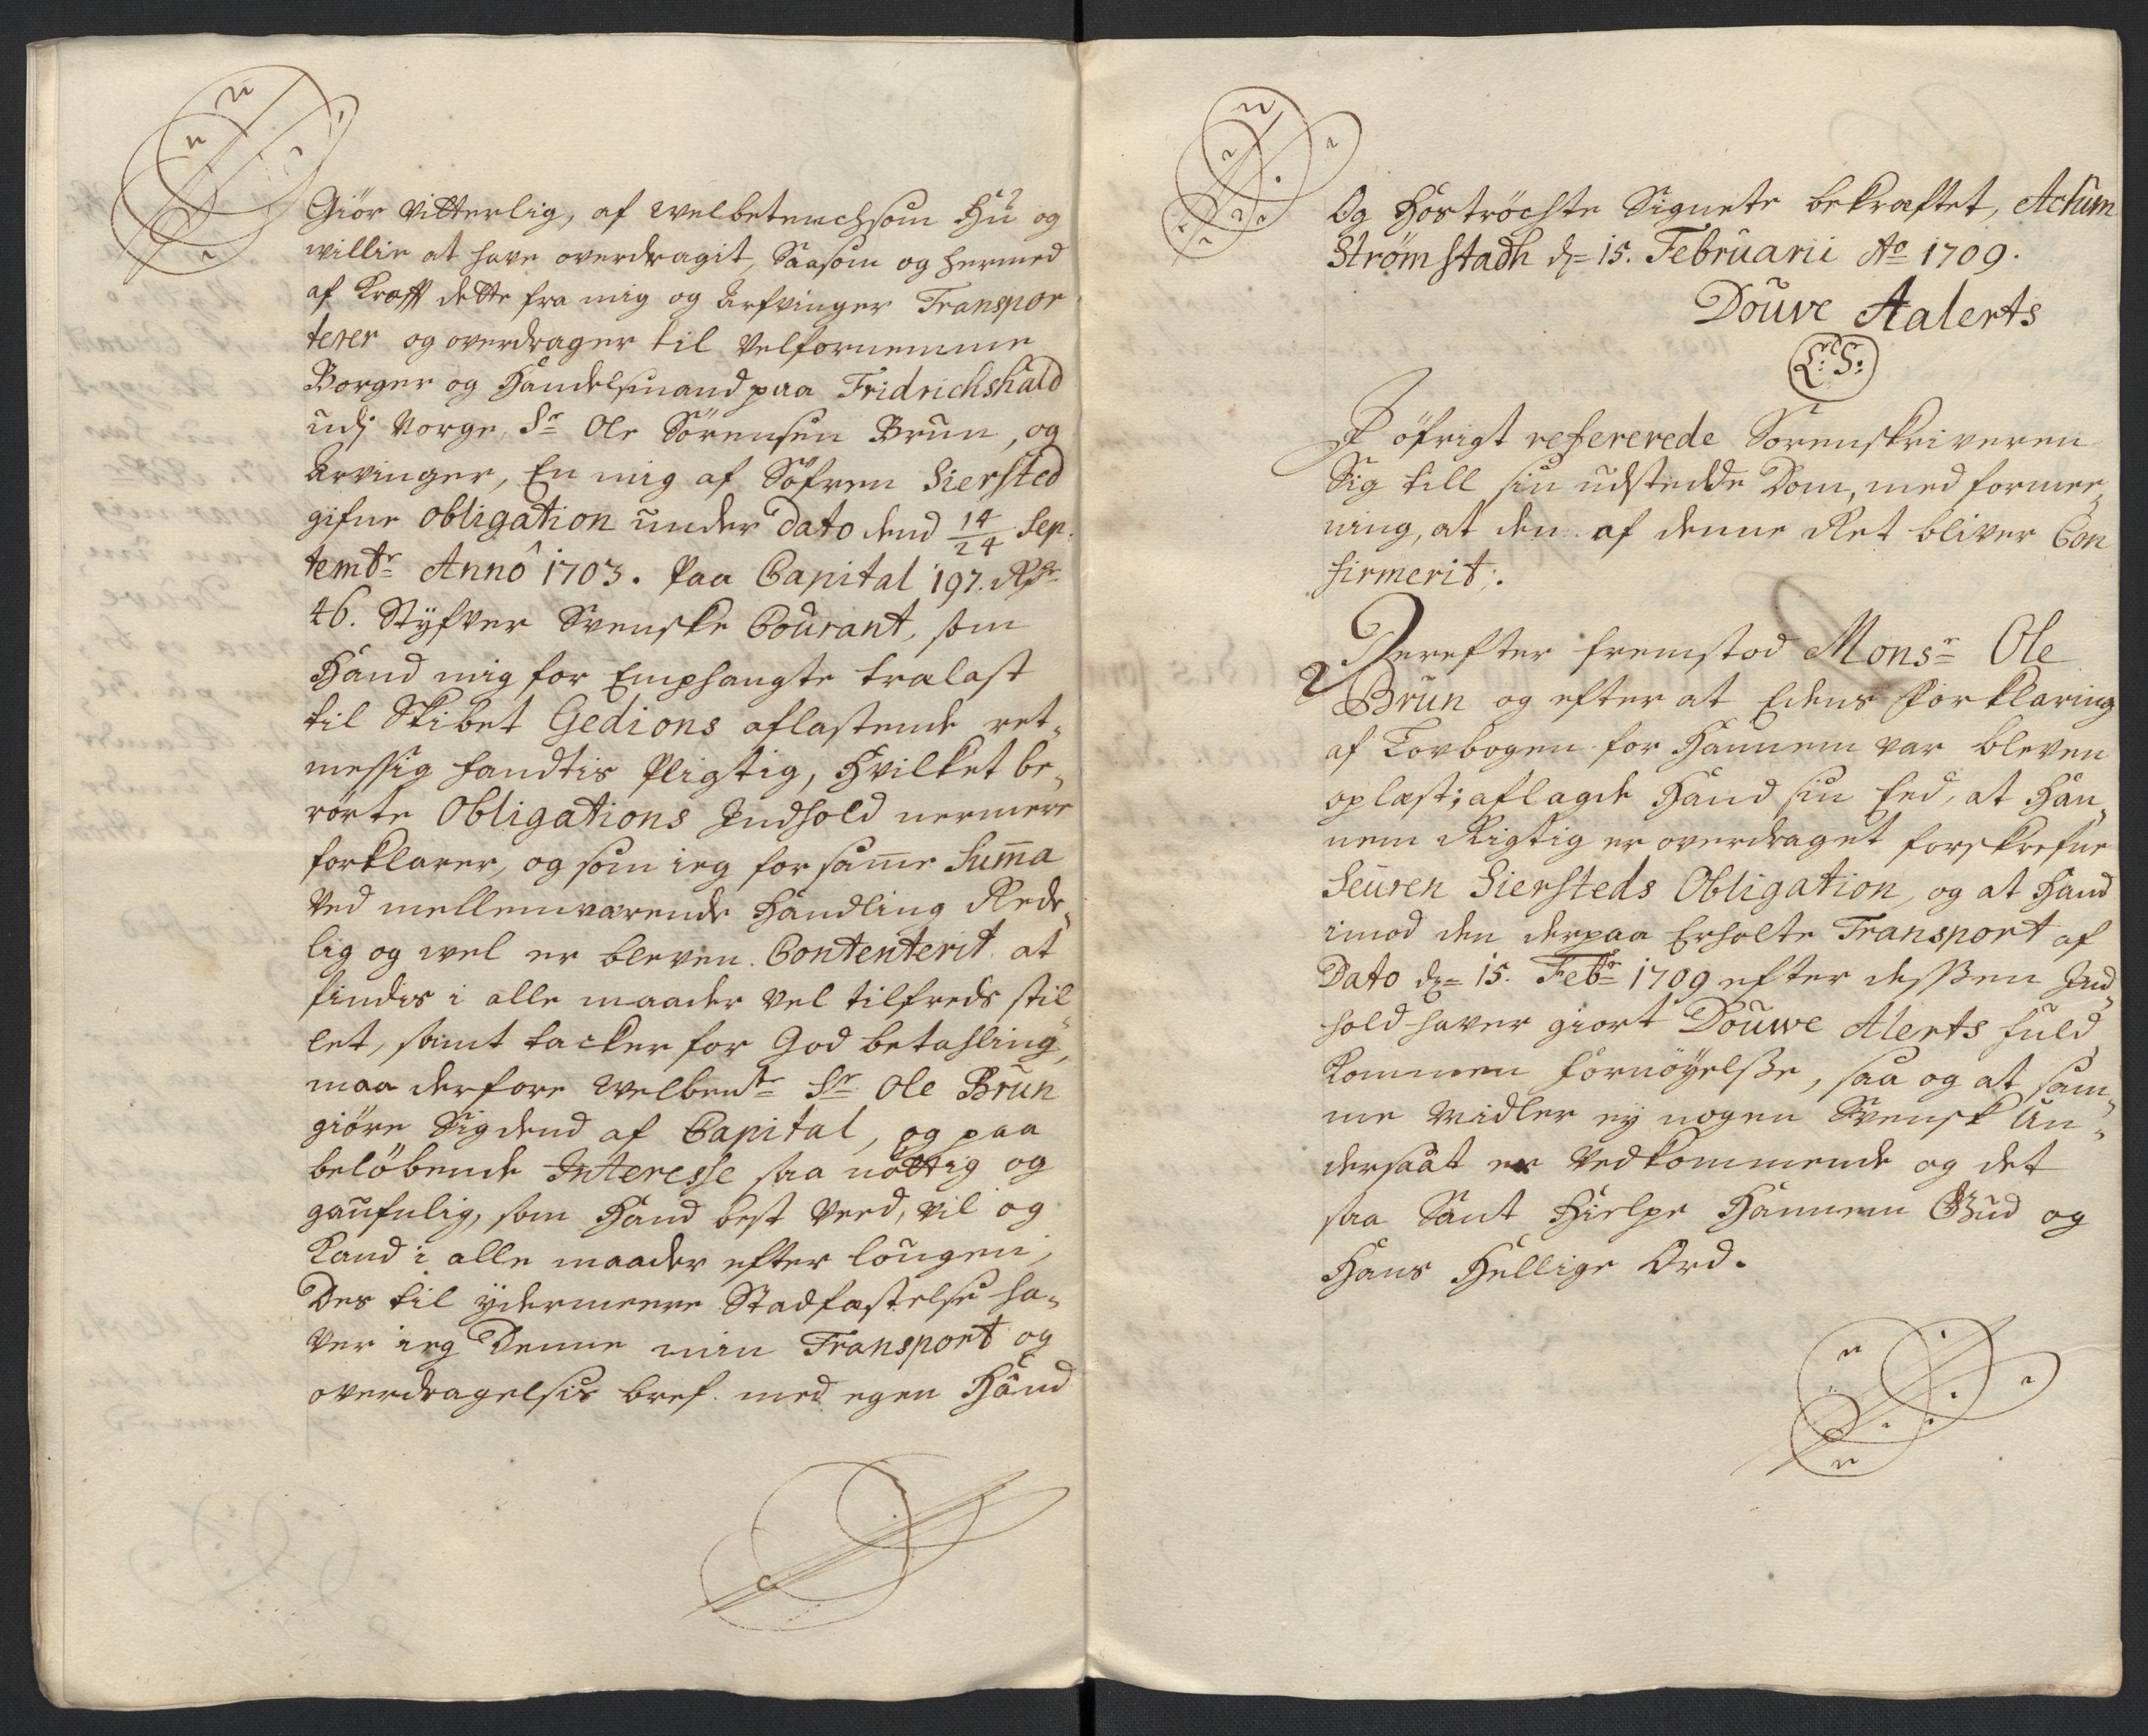 Giör vitterlig, af welbetenchsom Hu og
willie at have overdragit, Saasom og hermed
af Krafft dette fra mig og Arfvinger Transpor
terer og overdrager til Velfornemme
Borger og Handelsmand paa Fridrichshald
udj Norge, Sr Ole Sörensen Brun, og
Arvinger, En mig af Söfren Siersted
gifne obligation under Dato dend 14/24 Sep.
tembr Annô 1703. Paa Capital 197. Rdr
46. Styfver Svenske Courant, som
Hand mig for Emphangte tralast
til Skibet Gedions aflastende ret-
messig fandtis Pligtig, Hvilket be-
rörte Obligations Indhold nermere
forklarer, og som ieg for samme Summa
Ved mellemværende Handling Rede-
lig og wel er bleven Contenterit at
findes i alle maader Vel tilfreds stil-
let, samt tacker for God betahling,
maa derfore Welbente Sr Ole Brun
giöre Sig dend af Capital, og paa
belöbende Interesse saa nöttig og
gaufnlig, som Hand best Veed, Vil og
Kand i alle maader efter lougen;
Des til ydermeere Stadfæstelse ha-
ver ieg Denne min Transport og
overdragelsis bref med egen Hand
Og Hoströchte Signete bekræftet, Actum
Strømstadh d= 15. Februarii Ao 1709.
Douve Aalerts
L: S:
I öfrigt refererede Sorenskriveren
Sig till sin udstedde Dom, med formee-
ning, at den af denne Ret bliver Con
firmerit:.
Derefter fremstod Monsr Ole
Brun og efter at Edens Forklaring
af Lovbogen for Hannem var bleven
oplæst; aflagde Hand sin Eed, at Han-
nem Rigtig er overdraget forskrefne
Seuren Siersteds Obligation, og at Hand
imod den derpaa Erholte Transport af
Dato d= 15. Febr 1709 efter dessen Ind-
hold haver giort Douwe Alerts fuld
kommen fornöyelsse, saa og at sam-
me Midler ey nogen Svensk Un-
dersaat er Vedkommende og det
saa Sant Hielpe Hannem Gud og
Hans Hellige Ord.